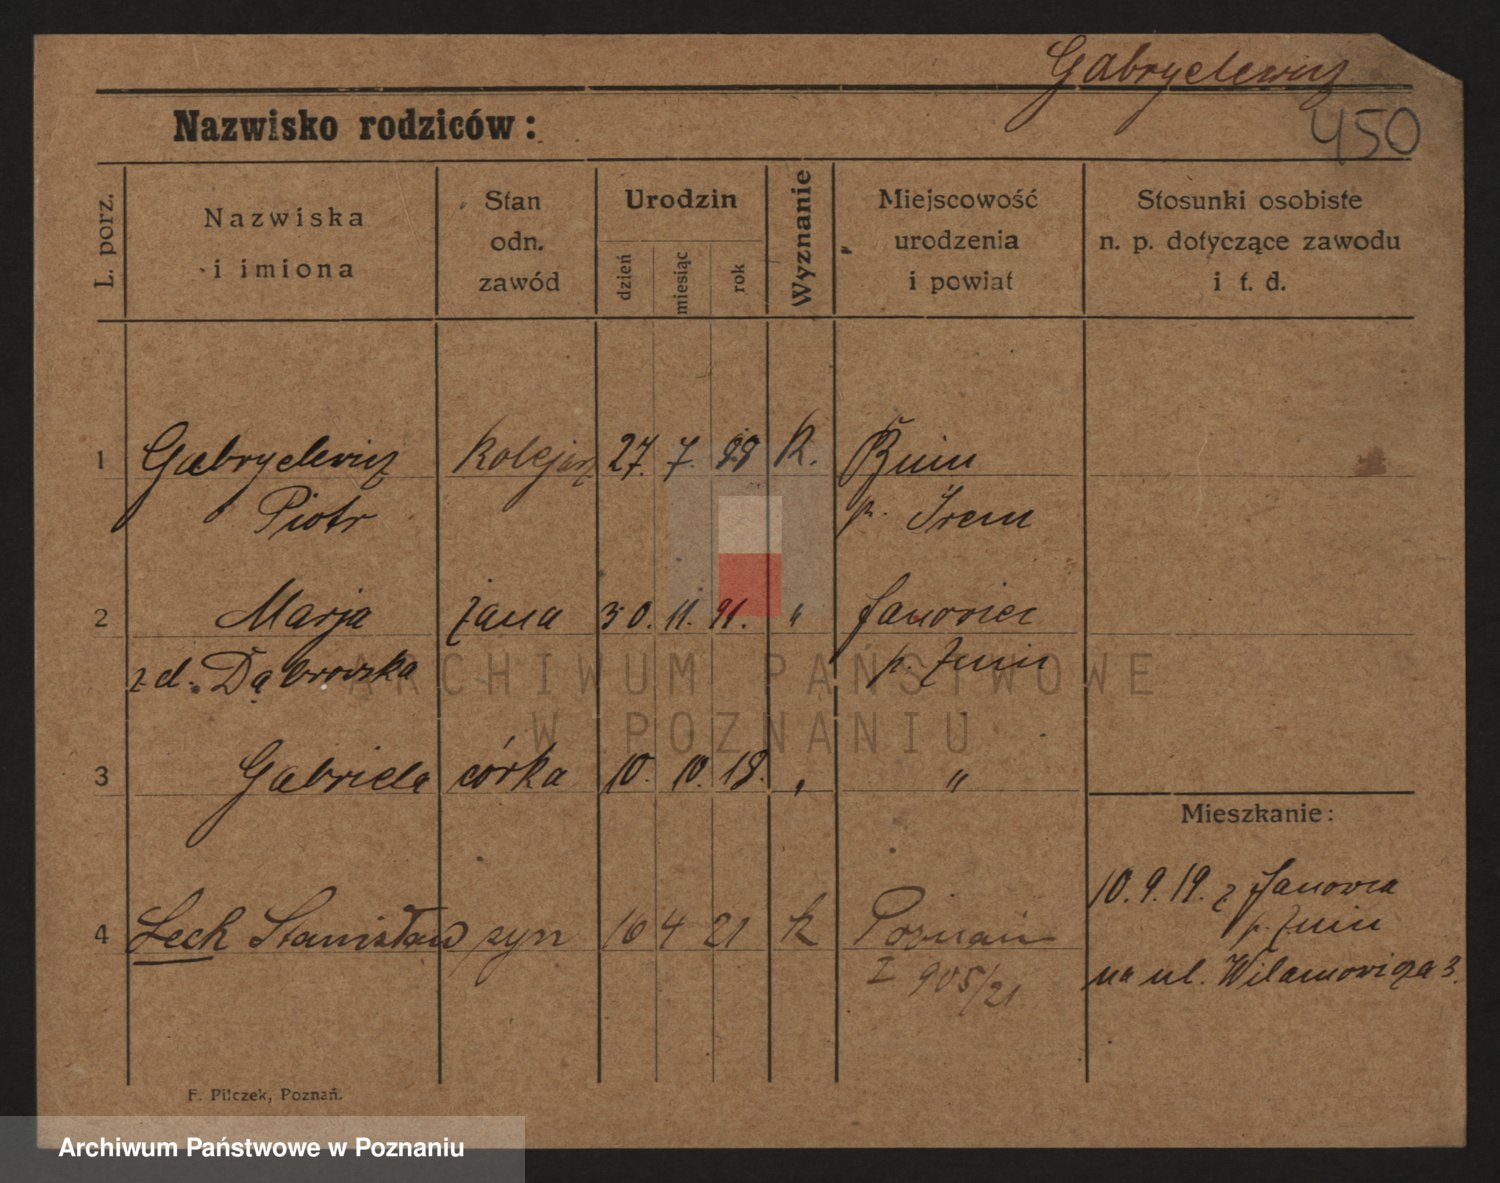 Gabryelewicz
450
Nazwisko rodziców:
L. porz.
Nazwiska
i imiona
Stan
odn.
zawód
Urodzin
dzień
miesiąc
rok
Wyznanie
Miejscowość
urodzenia
i powiat
Stosunki osobiste
n. p. dotyczące zawodu
i t. d.
1 Gabryelewicz kolejarz 27. 7. 88 K. Bnin
Piotr p. Śrem
2 Marja żona 30. 11. 91. " Janowiec
z d. Dąbrowska p. Żnin
ARCHIWUM PAŃSTWOWE
W POZNANIU
3 Gabriela córka 10. 10. 18. " "
Mieszkanie:
10. 9. 19. z Janowca
p. Żnin
4 Lech Stanisław syn 16 4 21 k Poznań
I 905/21
na ul. Wilamowicza 3.
F. Pilczek, Poznań.
Archiwum Państwowe w Poznaniu